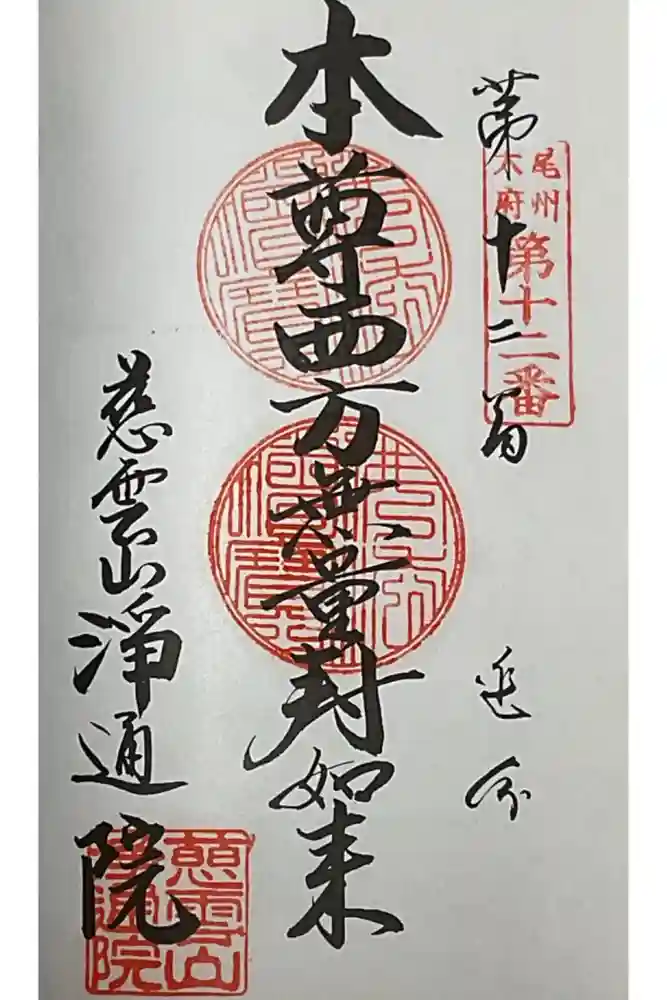 第十二番 追分
尾州
大府
第十二番
本尊西方無量寿如来
慈雲山淨通院
慈雲山
淨通院